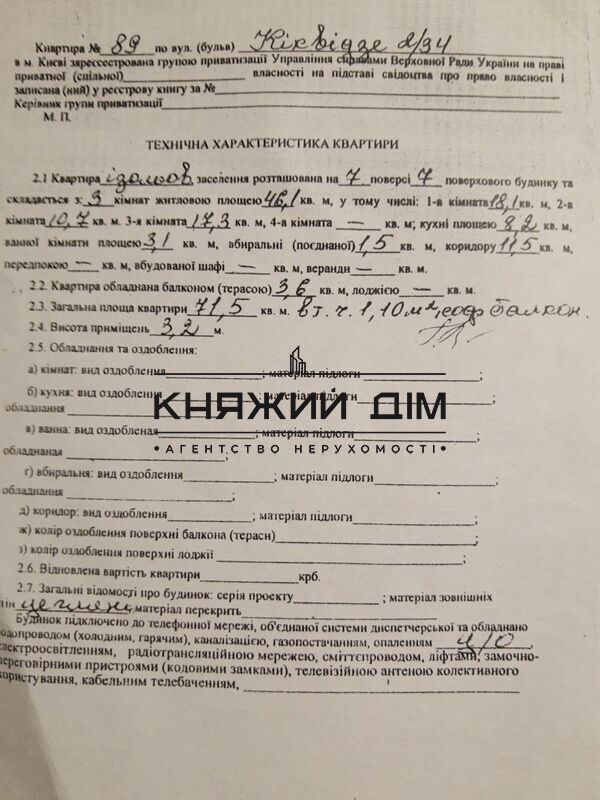 Квартира № 89 по вул. (бульв) Кіквідзе 2/34
в м. Києві зареєстрована групою приватизації Управління справами Верховної Ради України на праві
приватної (спільної) власності на підставі свідоцтва про право власності і
записана (ний) у реєстрову книгу за №
Керівник групи приватизації
М. П.
ТЕХНІЧНА ХАРАКТЕРИСТИКА КВАРТИРИ
2.1 Квартира ізольов. заселення розташована на 7 поверсі 7 поверхового будинку та
складається з: 3 кімнат житловою площею 46,1 кв. м, у тому числі: 1-а кімната 18,1 кв. м, 2-а
кімната 10,7 кв. м. 3-я кімната 17,3 кв. м, 4-а кімната — кв. м; кухні площею 8,2 кв. м,
ванної кімнати площею 3,1 кв. м, вбиральні (поєднаної) 1,5 кв. м, коридору 11,5 кв. м,
передпокою — кв. м, вбудованої шафі — кв. м, веранди — кв. м.
2.2. Квартира обладнана балконом (терасою) 3,6 кв. м, лоджією — кв. м.
2.3. Загальна площа квартири 71,5 кв. м. в т. ч. 1,10 м², балкон.
2.4. Висота приміщень 3,2 м.
2.5. Обладнання та оздоблення:
а) кімнат: вид оздоблення ; матеріал підлоги ;
б) кухня: вид оздоблення ; матеріал підлоги ;
обладнання
КНЯЖИЙ ДІМ
в) ванна: вид оздоблення ; матеріал підлоги ;
•АГЕНТСТВО НЕРУХОМОСТІ•
обладнаная ;
г) вбиральня: вид оздоблення ; матеріал підлоги ;
обладнання ;
д) коридор: вид оздоблення ; матеріал підлоги ;
ж) колір оздоблення поверхні балкона (тераси) ;
з) колір оздоблення поверхні лоджії ;
2.6. Відновлена вартість квартири крб.
2.7. Загальні відомості про будинок: серія проекту ; матеріал зовнішніх
тін цегляні, матеріал перекрить
Будинок підключено до телефонної мережі, об'єднаної системи диспетчерської та обладнано
одопроводом (холодним, гарячим), каналізацією, газопостачанням, опаленням ц/о,
електроосвітленням, радіотрансляційною мережею, сміттєпроводом, ліфтами, замочно-
переговірними пристроями (кодовими замками), телевізійною антеною колективного
користування, кабельним телебаченням,